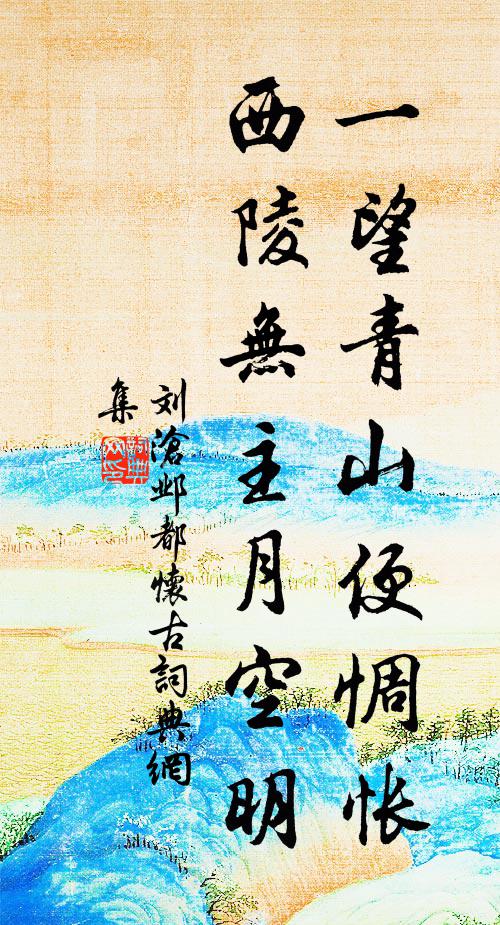 一望青山便惆怅
西陵無主月空明
刘滄邺都懷古詞典網
集